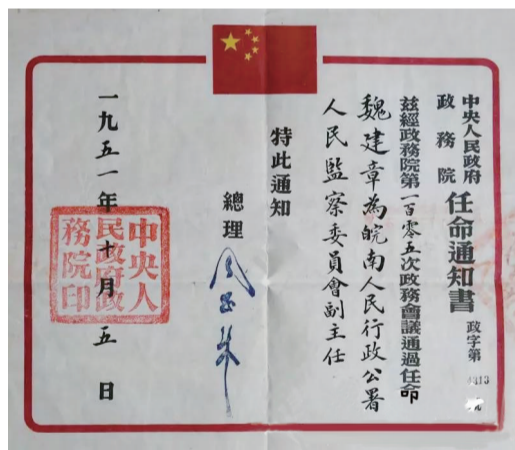 中央人民政府
政務院
任命通知書
政字第4313號
茲經政務院第一百零五次政務會議通過任命
魏建章為皖南人民行政公署
人民監察委員會副主任
特此通知
總理
周恩來
一九五一年十月五日
中央人民政府政務院印